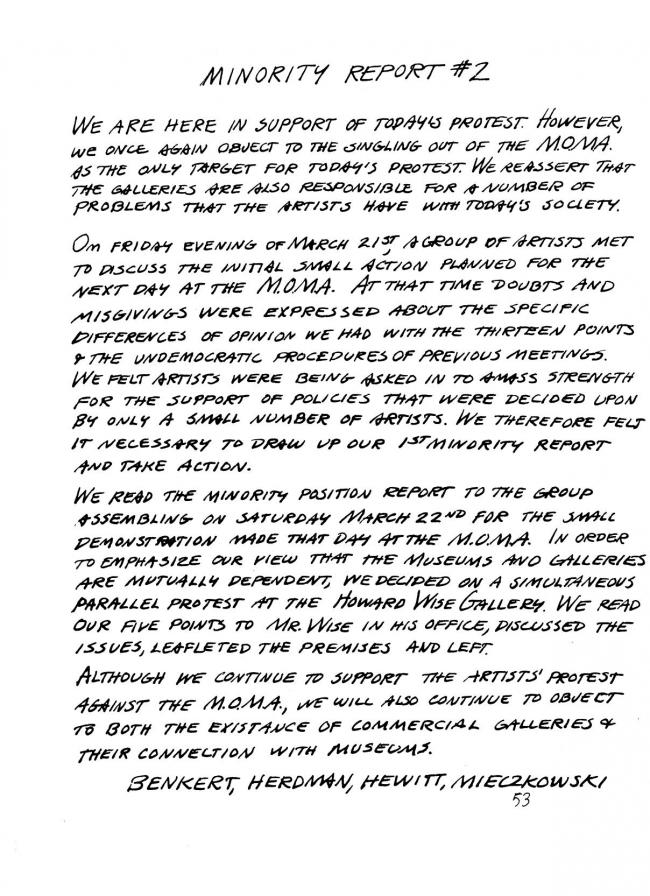 MINORITY REPORT #2
WE ARE HERE IN SUPPORT OF TODAY'S PROTEST. HOWEVER,
WE ONCE AGAIN OBJECT TO THE SINGLING OUT OF THE M.O.M.A.
AS THE ONLY TARGET FOR TODAY'S PROTEST. WE REASSERT THAT
THE GALLERIES ARE ALSO RESPONSIBLE FOR A NUMBER OF
PROBLEMS THAT THE ARTISTS HAVE WITH TODAY'S SOCIETY.
ON FRIDAY EVENING OF MARCH 21ST, A GROUP OF ARTISTS MET
TO DISCUSS THE INITIAL SMALL ACTION PLANNED FOR THE
NEXT DAY AT THE M.O.M.A. AT THAT TIME DOUBTS AND
MISGIVINGS WERE EXPRESSED ABOUT THE SPECIFIC
DIFFERENCES OF OPINION WE HAD WITH THE THIRTEEN POINTS
& THE UNDEMOCRATIC PROCEDURES OF PREVIOUS MEETINGS.
WE FELT ARTISTS WERE BEING ASKED IN TO AMASS STRENGTH
FOR THE SUPPORT OF POLICIES THAT WERE DECIDED UPON
BY ONLY A SMALL NUMBER OF ARTISTS. WE THEREFORE FELT
IT NECESSARY TO DRAW UP OUR 1ST MINORITY REPORT
AND TAKE ACTION.
WE READ THE MINORITY POSITION REPORT TO THE GROUP
ASSEMBLING ON SATURDAY MARCH 22ND FOR THE SMALL
DEMONSTRATION MADE THAT DAY AT THE M.O.M.A. IN ORDER
TO EMPHASIZE OUR VIEW THAT THE MUSEUMS AND GALLERIES
ARE MUTUALLY DEPENDENT, WE DECIDED ON A SIMULTANEOUS
PARALLEL PROTEST AT THE HOWARD WISE GALLERY. WE READ
OUR FIVE POINTS TO MR. WISE IN HIS OFFICE, DISCUSSED THE
ISSUES, LEAFLETED THE PREMISES AND LEFT.
ALTHOUGH WE CONTINUE TO SUPPORT THE ARTISTS' PROTEST
AGAINST THE M.O.M.A., WE WILL ALSO CONTINUE TO OBJECT
TO BOTH THE EXISTANCE OF COMMERCIAL GALLERIES &
THEIR CONNECTION WITH MUSEUMS.
BENKERT, HERDMAN, HEWITT, MIECZKOWSKI
53